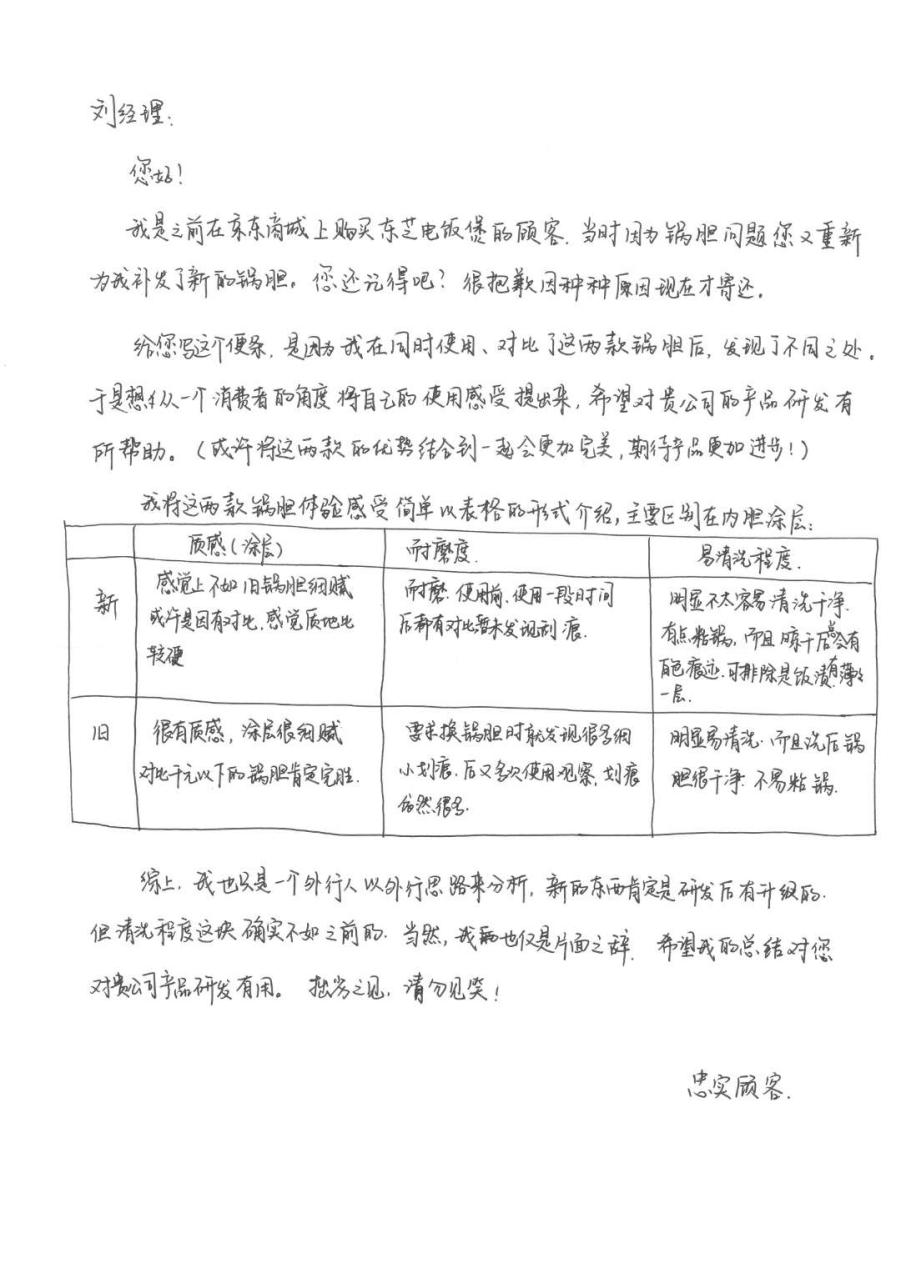 刘经理:
您好!
我是之前在京东商城上购买东芝电饭煲的顾客.当时因为锅胆问题您又重新
为我补发了新的锅胆。您还记得吧?很抱歉因种种原因现在才寄还。
给您写这个便条,是因为我在同时使用、对比了这两款锅胆后,发现了不同之处。
于是想从一个消费者的角度将自己的使用感受提出来,希望对贵公司的产品研发有
所帮助。(或许将这两款的优势结合到一起会更加完美,期待产品更加进步!)
我将这两款锅胆体验感受简单以表格的形式介绍,主要区别在内胆涂层:
质感(涂层)
耐磨度.
易清洗程度.
新
感觉上不如旧锅胆细腻
或许是因有对比,感觉质地比
较硬
耐磨.使用前、使用一段时间
后都有对比暂未发现划痕.
明显不太容易清洗干净.
有点粘锅,而且晾干后总会有
白色痕迹.可排除是饭渍.有薄薄
一层.
旧
很有质感,涂层很细腻
对比千元以下的锅胆肯定完胜.
要求换锅胆时就发现很多细
小划痕.后又多次使用观察,划痕
仍然很多.
明显易清洗.而且洗后锅
胆很干净.不易粘锅.
综上,我也只是一个外行人以外行思路来分析,新的东西肯定是研发后有升级的.
但清洗程度这块确实不如之前的.当然,我也仅是片面之辞.希望我的总结对您
对贵公司产品研发有用。拙劣之见,请勿见笑!
忠实顾客.